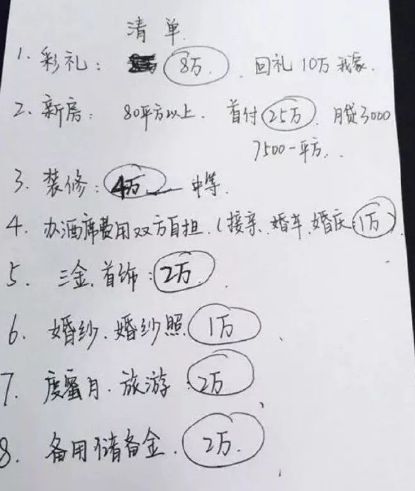 清单.
1. 彩礼: 8万. 回礼10万 我家.
2. 新房: 80平方以上. 首付25万. 月贷3000
7500一平方..
3. 装修: 4万 中等.
4. 办酒席费用双方自担.(接亲、婚车、婚庆:1万)
5. 三金、首饰:2万
6. 婚纱、婚纱照 1万
7. 度蜜月、旅游:2万
8. 备用储备金. 2万.